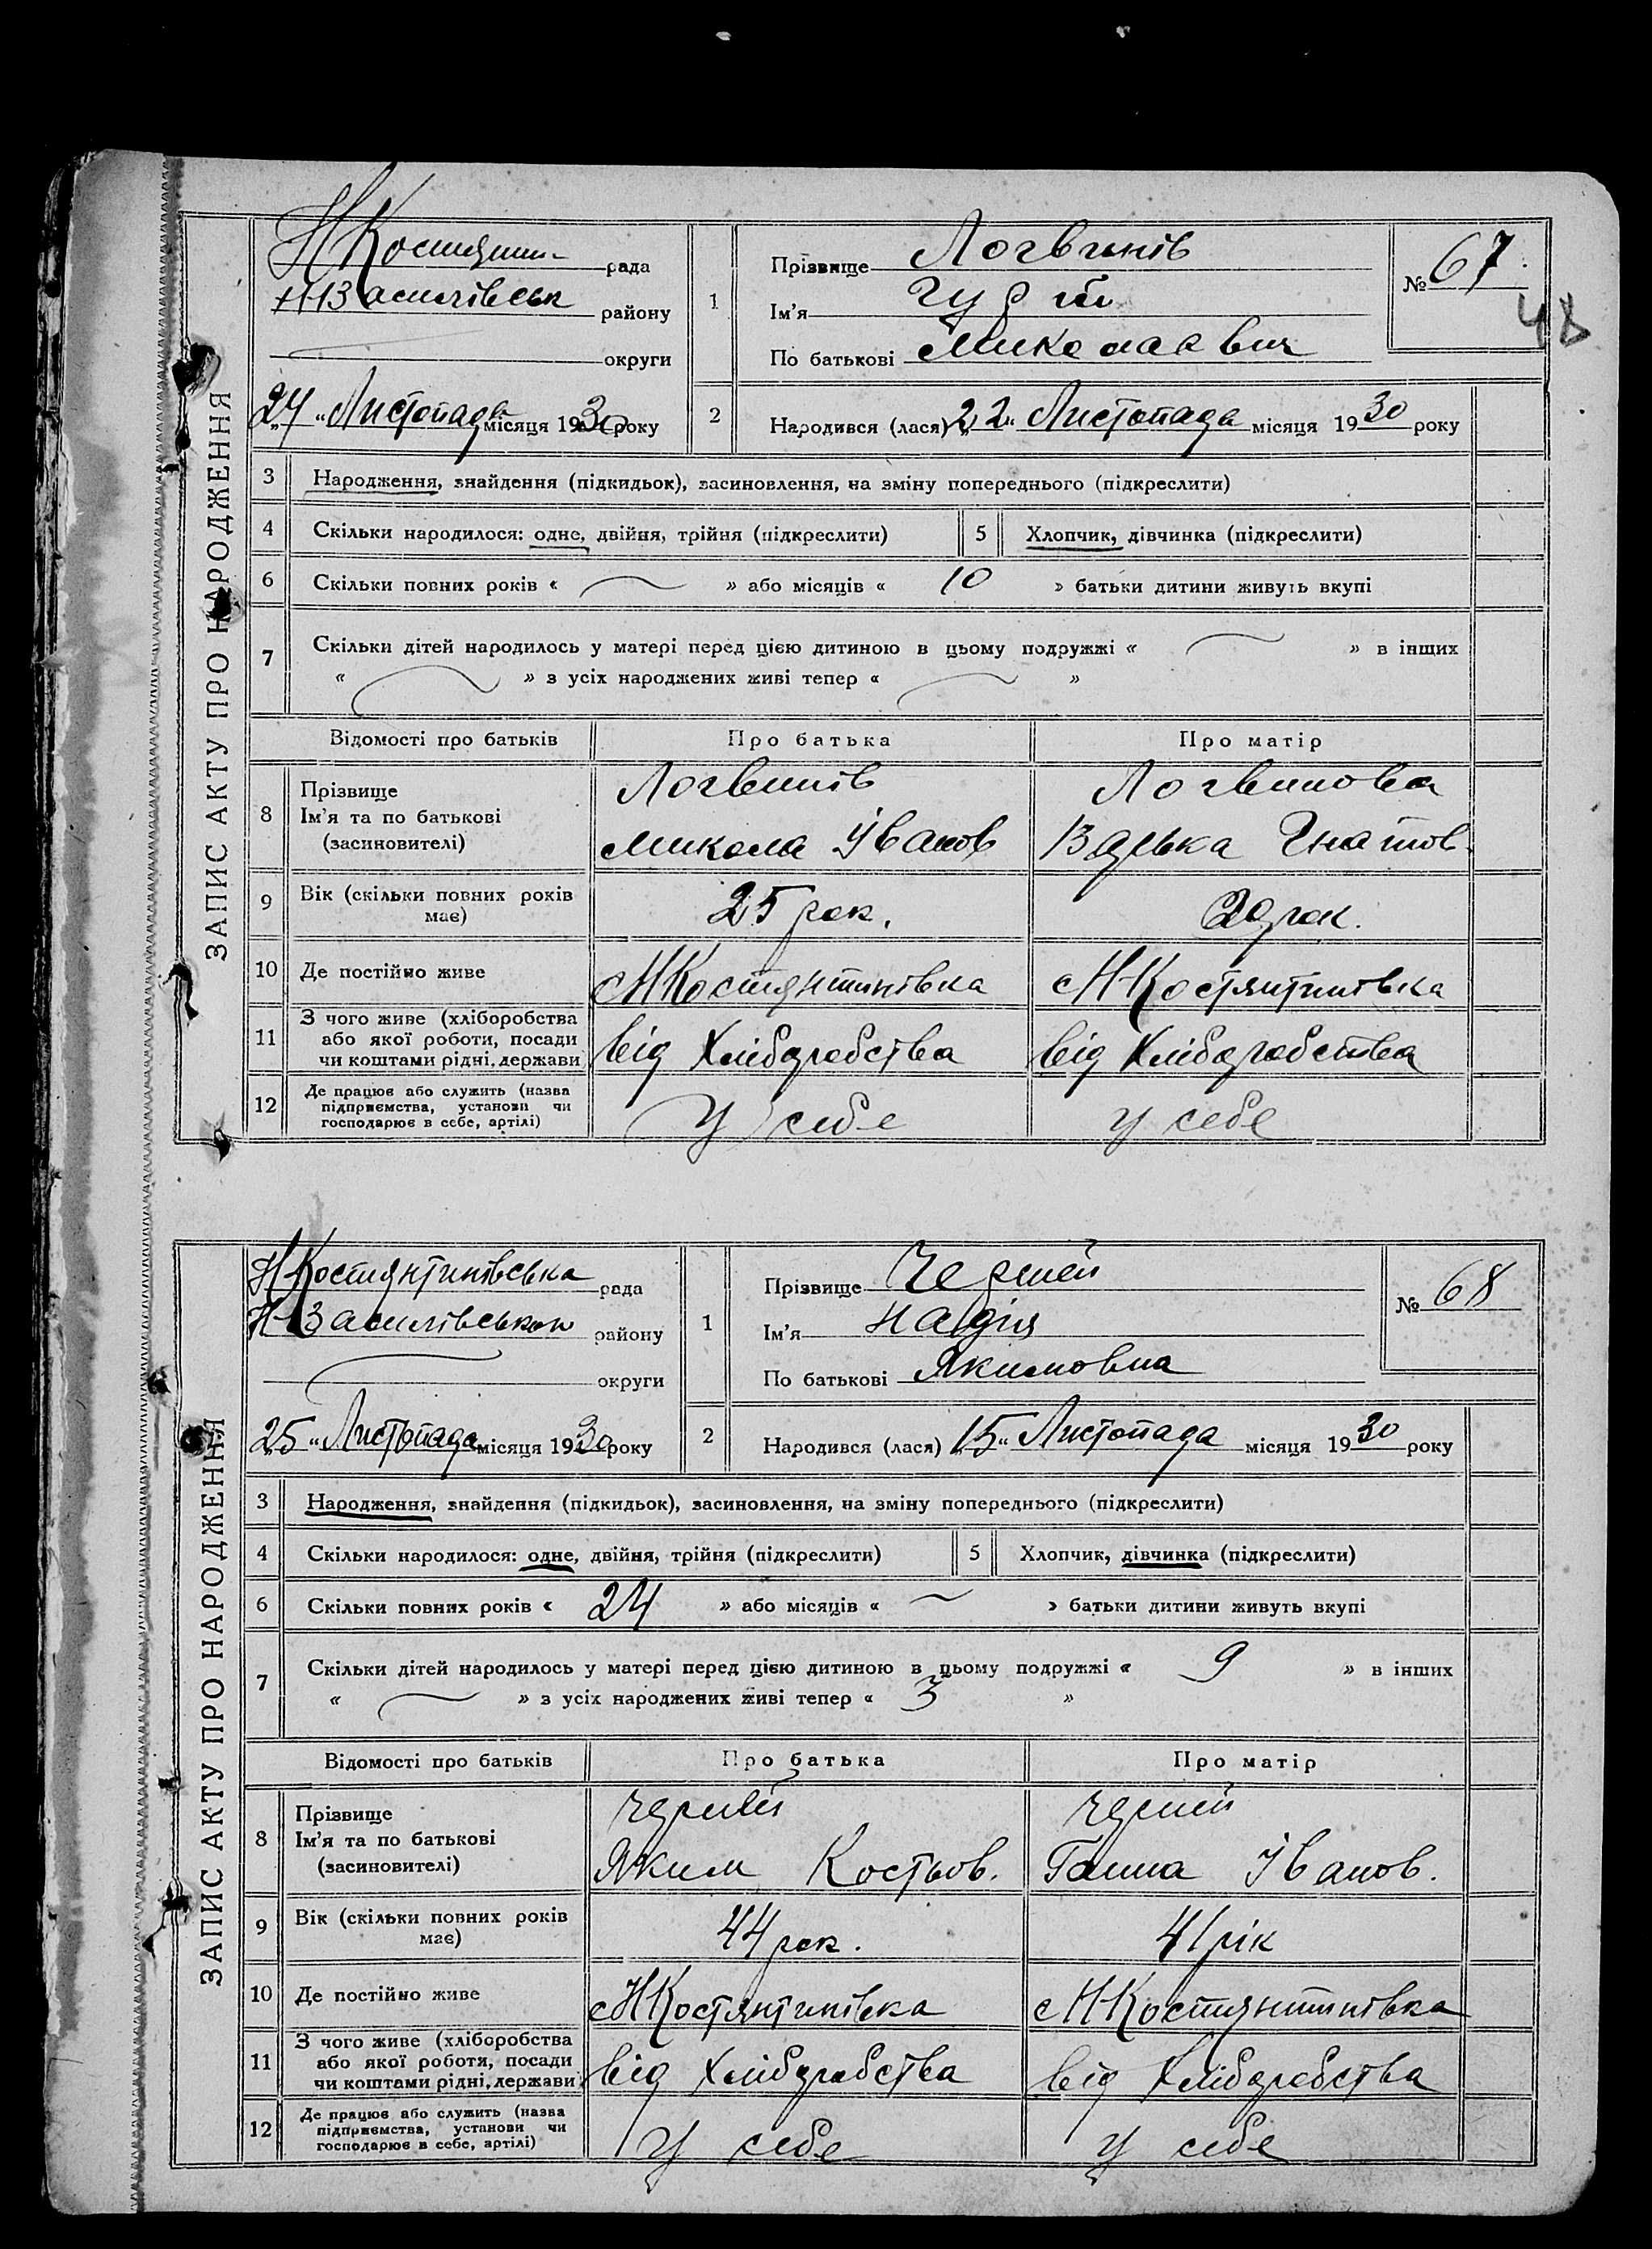 ЗАПИС АКТУ ПРО НАРОДЖЕННЯ
Н Костянтин- рада
Н-Василівськ району
округи
24 "Листопада місяця 1930 року
1
Прізвище Логвинів
Ім'я Гурій
По батькові Миколаєвич
№ 67
48
2
Народився (лася) 22" Листопада місяця 1930 року
3 Народження, знайдення (підкидьок), засиновлення, на зміну попереднього (підкреслити)
4 Скільки народилося: одне, двійня, трійня (підкреслити) 5 Хлопчик, дівчинка (підкреслити)
6 Скільки повних років « » або місяців « 10 » батьки дитини живуть вкупі
7 Скільки дітей народилось у матері перед цією дитиною в цьому подружжі « » в інщих
« » з усіх народжених живі тепер « »
Відомості про батьків Про батька Про матір
8 Прізвище
Ім'я та по батькові
(засиновителі)
Логвинів
Микола Іванов
Логвинова
Игнатов.
9 Вік (скільки повних років
має)
25 рок. 20 рок.
10 Де постійно живе с Н Костянтинівка с Н-Костянтинівка
11 З чого живе (хліборобства
або якої роботи, посади
чи коштами рідні, держави
від Хліборобства від Хліборобства
12 Де працює або служить (назва
підприємства, установи чи
господарює в себе, артілі)
У себе у себе
ЗАПИС АКТУ ПРО НАРОДЖЕННЯ
Н-Костянтинівська рада
Н-Василівськог району
округи
25 "Листопада місяця 1930 року
1
Прізвище Черней
Ім'я Надія
По батькові Якимовна
№ 68
2
Народився (лася) 15" Листопада місяця 1930 року
3 Народження, знайдення (підкидьок), засиновлення, на зміну попереднього (підкреслити)
4 Скільки народилося: одне, двійня, трійня (підкреслити) 5 Хлопчик, дівчинка (підкреслити)
6 Скільки повних років « 24 » або місяців « » батьки дитини живуть вкупі
7 Скільки дітей народилось у матері перед цією дитиною в цьому подружжі « 9 » в інших
« » з усіх народжених живі тепер « 3 »
Відомості про батьків Про батька Про матір
8 Прізвище
Ім'я та по батькові
(засиновителі)
Черней
Яким Костьов.
Черней
Ганна Іванов.
9 Вік (скільки повних років
має)
44 рок. 41 рік
10 Де постійно живе с Н Костянтинівка с Н-Костянтинівка
11 З чого живе (хліборобства
або якої роботи, посади
чи коштами рідні, держави
від Хліборобства від Хліборобства
12 Де працює або служить (назва
підприємства, установи чи
господарює в себе, артілі)
У себе у себе